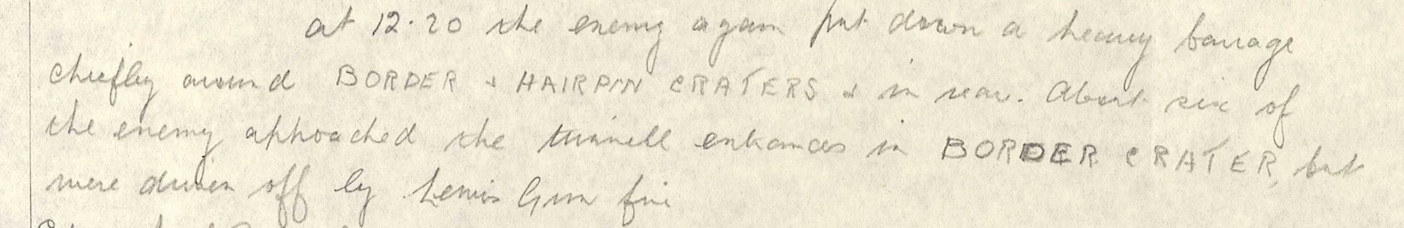 at 12·20 the enemy again put down a heavy barrage
chiefly around BORDER & HAIRPIN CRATERS & in rear. About six of
the enemy approached the tunnell entrances in BORDER CRATER, but
were driven off by Lewis Gun fire